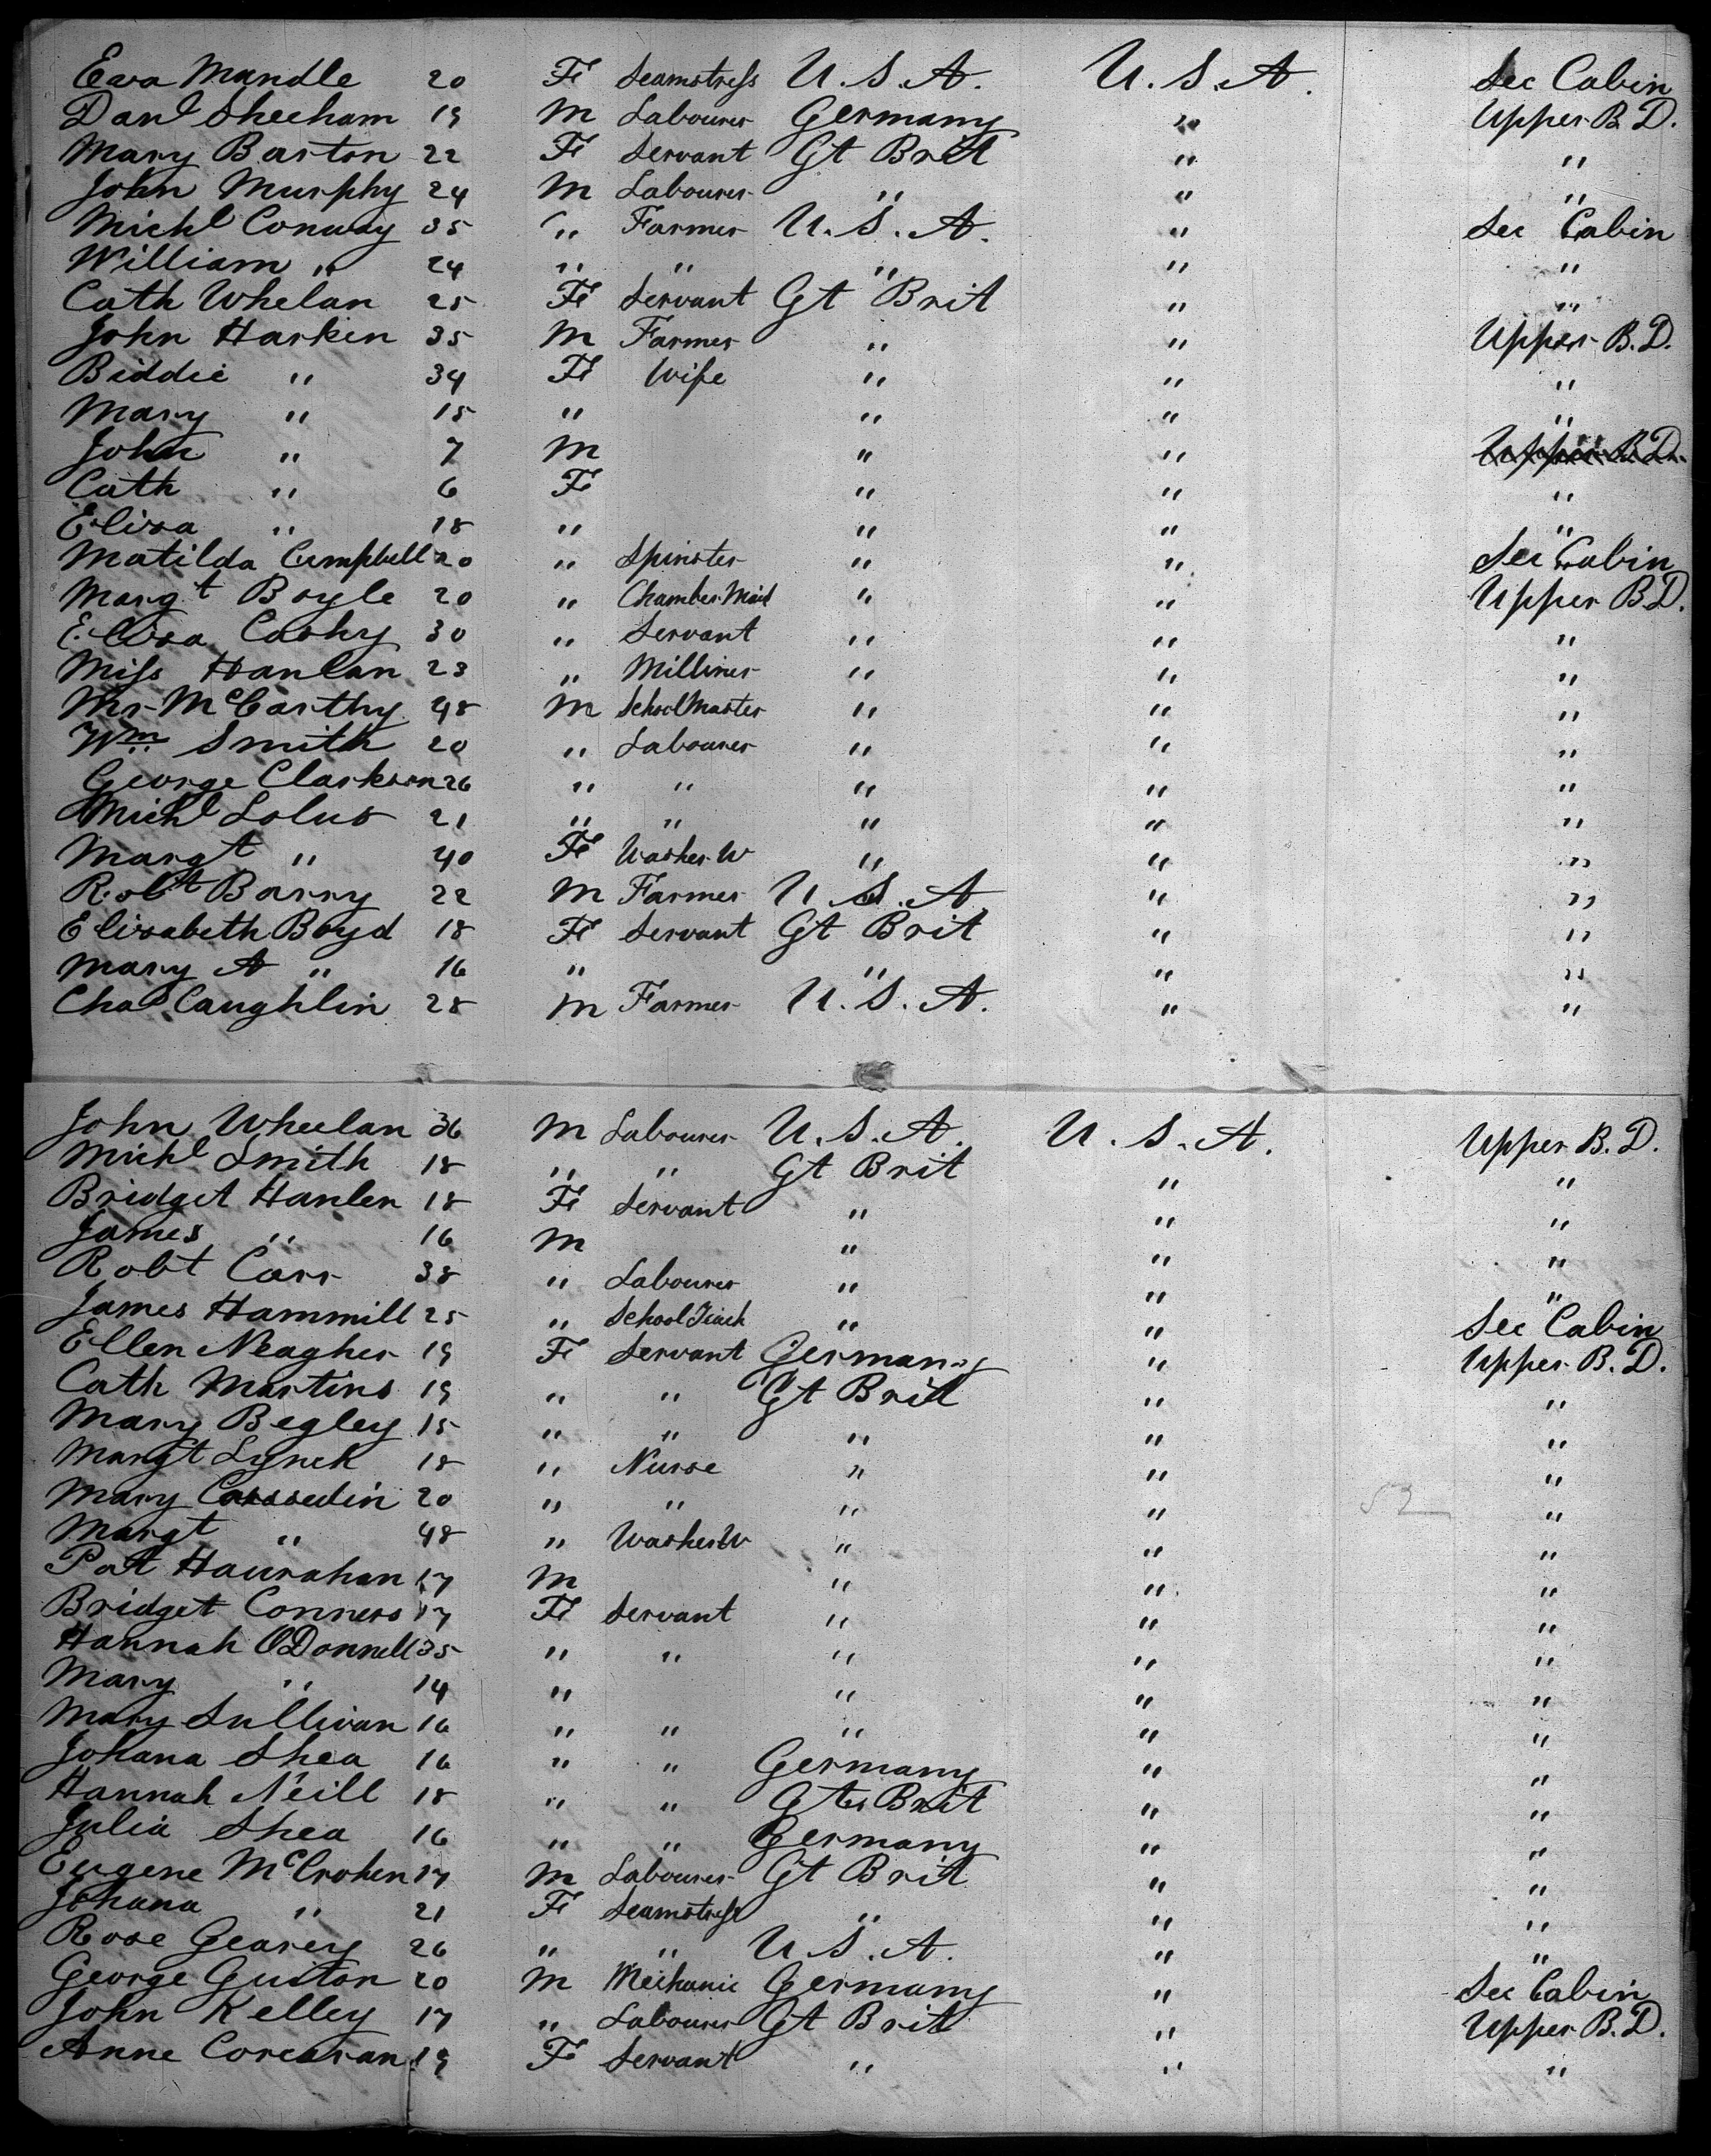 Eava Mandle 20 Fe Seamstress U.S.A. U.S.A. Sec Cabin
Danl Sheeham 19 M Labourer Germany " Upper B.D.
Mary Barton 22 Fe Servant Gt Brit " "
John Murphy 24 M Labourer " " "
Michl Conway 35 " Farmer U.S.A. " Sec Cabin
William " 24 " " " " "
Cath Whelan 25 Fe Servant Gt Brit " "
John Harken 35 M Farmer " " Upper B.D.
Biddie " 34 Fe Wife " " "
Mary " 15 " " " "
John " 7 M " " Upper B.D.
Cath " 6 Fe " " "
Eliza " 18 " " " "
Matilda Campbell 20 " Spinster " " Sec Cabin
Margt Boyle 20 " Chamber Maid " " Upper B.D.
Eliza Cashy 30 " Servant " " "
Miss Hanlan 23 " Milliner " " "
Mr McCarthy 48 M School Master " " "
Wm Smith 20 " Labourer " " "
George Clarkson 26 " " " " "
Michl Lolus 21 " " " " "
Margt " 40 Fe Washer W " " "
Robt Barry 22 M Farmer U.S.A. " "
Elizabeth Boyd 18 Fe Servant Gt Brit " "
Mary A " 16 " " " "
Chas Caughlin 28 M Farmer U.S.A. " "
John Wheelan 36 M Labourer U.S.A. U.S.A. Upper B.D.
Michl Smith 18 " " Gt Brit " "
Bridget Hanlen 18 Fe Servant " " "
James " 16 M " " "
Robt Carr 38 " Labourer " " "
James Hammill 25 " School Teach " " Sec Cabin
Ellen Neagher 19 Fe Servant Germany " Upper B.D.
Cath Martins 19 " " Gt Brit " "
Mary Begley 15 " " " " "
Margt Lynch 18 " Nurse " " "
Mary Cassedin 20 " " " " "
Margt " 48 " Washer W " " "
Pat Haurahan 17 M " " "
Bridget Conners 17 Fe Servant " " "
Hannah O'Donnell 35 " " " " "
Mary " 14 " " " "
Mary Sullivan 16 " " " " "
Johana Shea 16 " " Germany " "
Hannah Neill 18 " " Gt Brit " "
Julia Shea 16 " " Germany " "
Eugene McCrohen 17 M Labourer Gt Brit " "
Johana " 21 Fe Seamstress " " "
Rose Gearey 26 " " U.S.A. " "
George Guston 20 M Mechanic Germany " Sec Cabin
John Kelley 17 " Labourer Gt Brit " Upper B.D.
Anne Corcoran 19 Fe Servant " " "